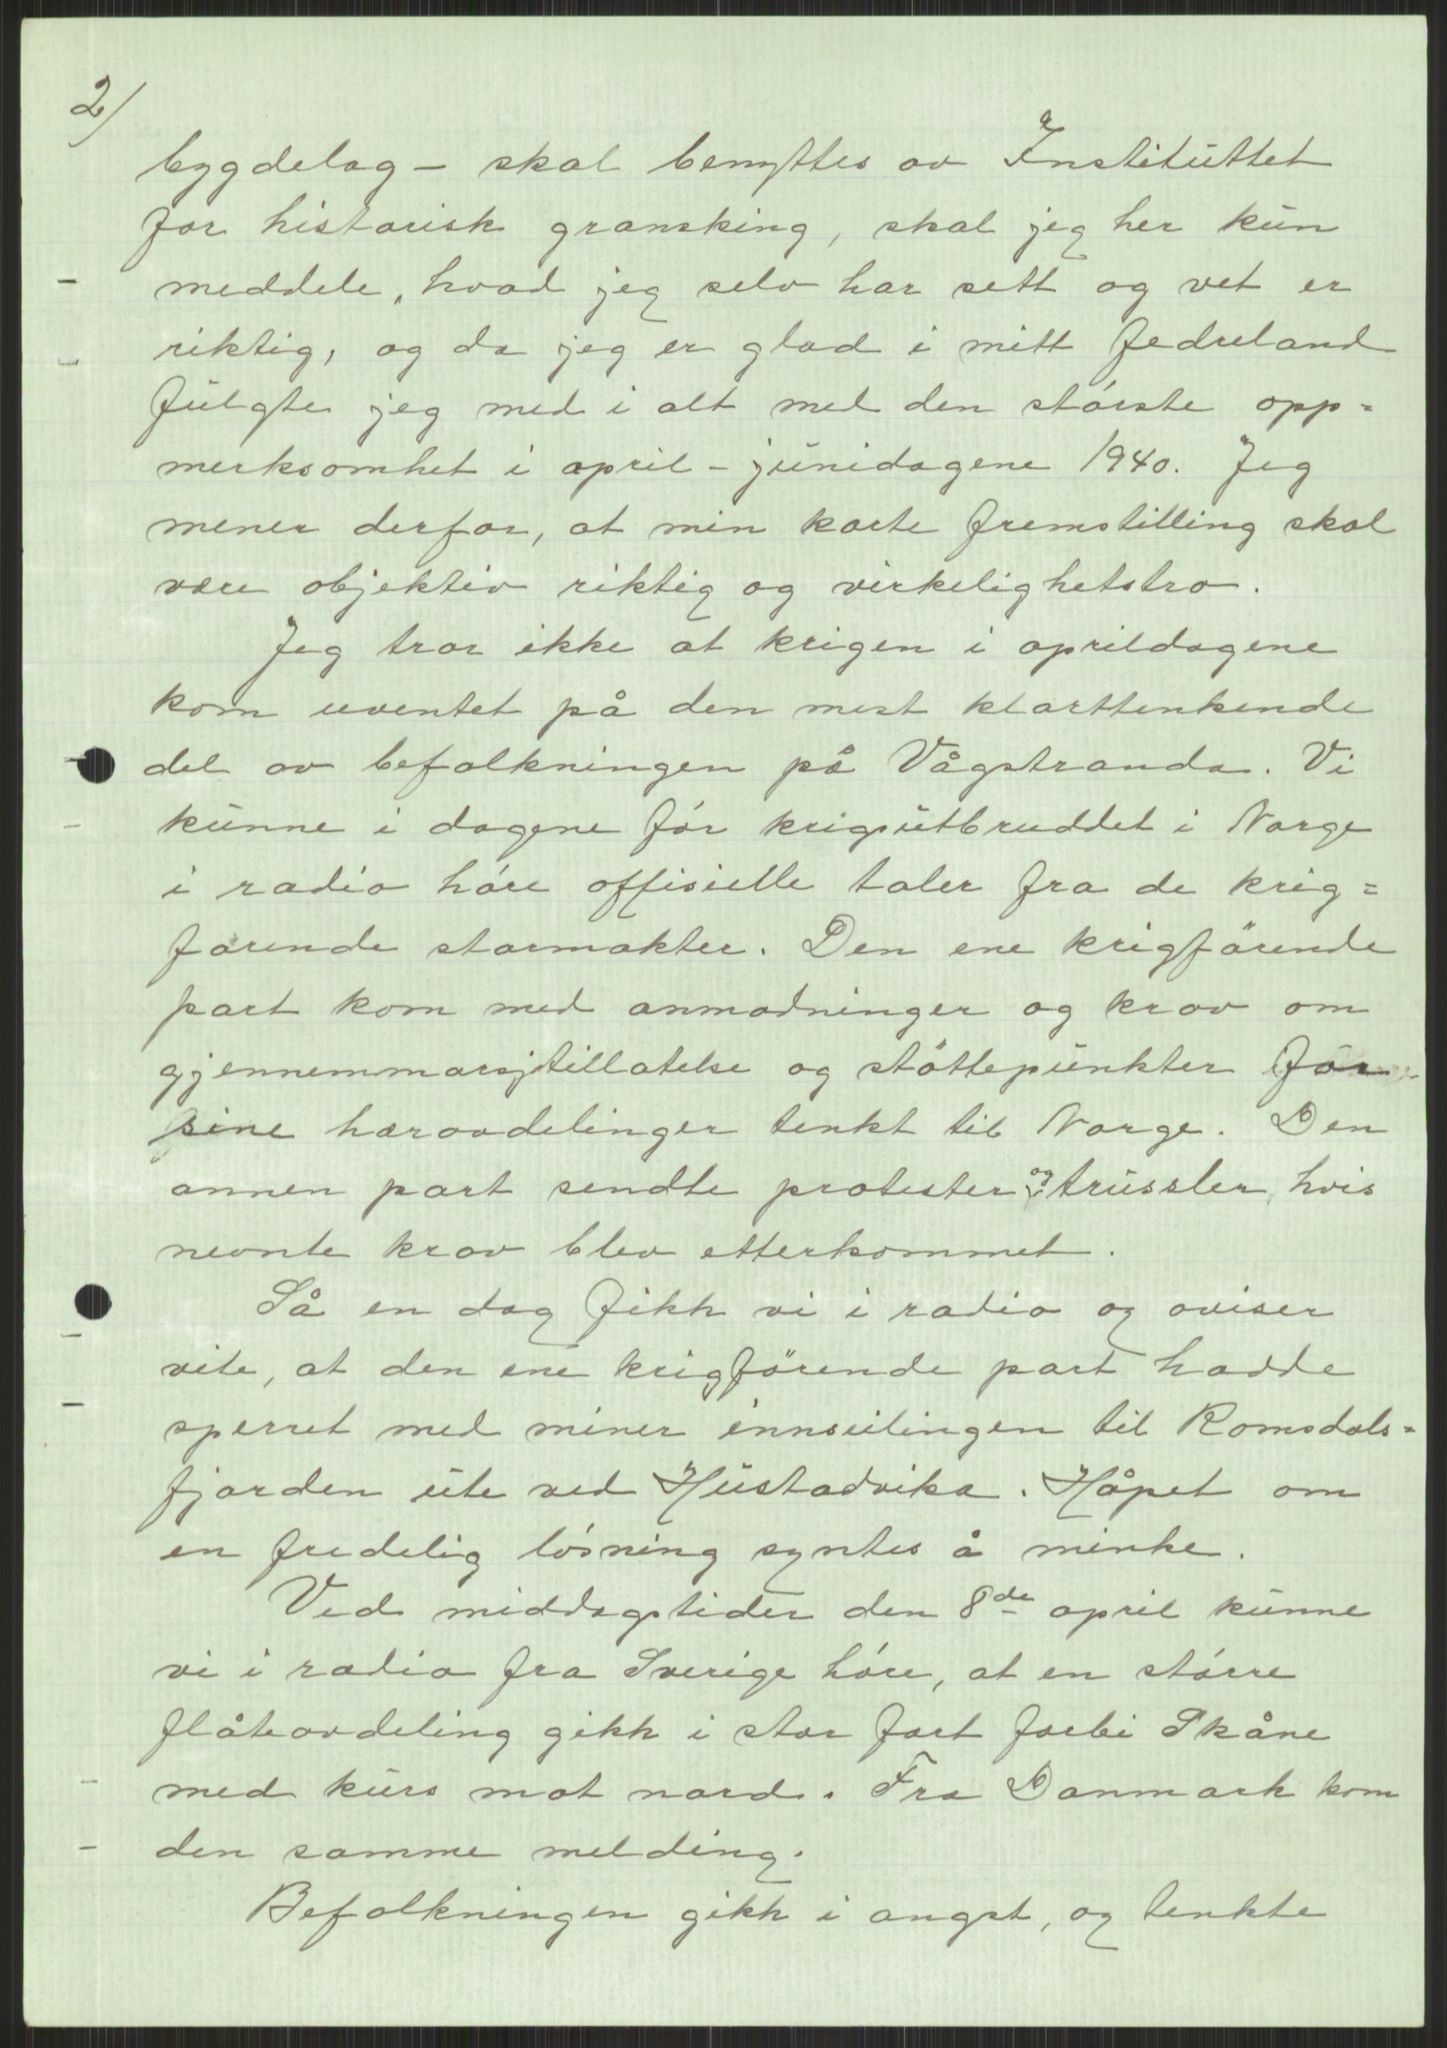 2/
bygdelag – skal benyttes av Instituttet
for historisk gransking, skal jeg her kun
meddele, hvad jeg selv har sett og vet er
riktig, og da jeg er glad i mitt fedreland
fulgte jeg med i alt med den største opp=
merksomhet i april – junidagene 1940. Jeg
mener derfor, at min korte fremstilling skal
være objektiv riktig og virkelighetstro.
Jeg tror ikke at krigen i aprildagene
kom uventet på den mest klarttenkende
del av befolkningen på Vågstranda. Vi
kunne i dagene før krigsutbruddet i Norge
i radio høre offisielle taler fra de krig=
førende stormakter. Den ene krigførende
part kom med anmodninger og krav om
gjennemmarsjtillatelse og støttepunkter for
sine hæravdelinger tenkt til Norge. Den
annen part sendte protester og trussler, hvis
nevnte krav blev etterkommet.
Så en dag fikk vi i radio og aviser
vite, at den ene krigførende part hadde
sperret med miner innseilingen til Romsdals=
fjorden ute ved Hustadvika. Håpet om
en fredelig løsning syntes å minke.
Ved middagstider den 8de april kunne
vi i radio fra Sverige høre, at en større
flåteavdeling gikk i stor fart forbi Skåne
med kurs mot nord. Fra Danmark kom
den samme melding.
Befolkningen gikk i angst, og tenkte